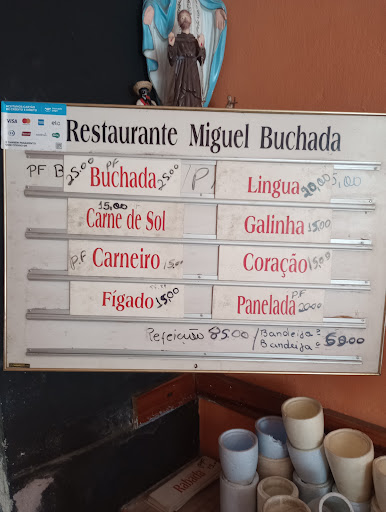 VISA
Restaurante Miguel Buchada
PF B 25.00 Buchada PF 25.00 P. Lingua 20,00 5,00
15,00
Carne de Sol Galinha 15,00
P.F Carneiro 15,00 Coração 15,00
Fígado 15,00 Panelada P.F 2000
Refeicão 85.00 / Bandeija
Bandeija
Rabada